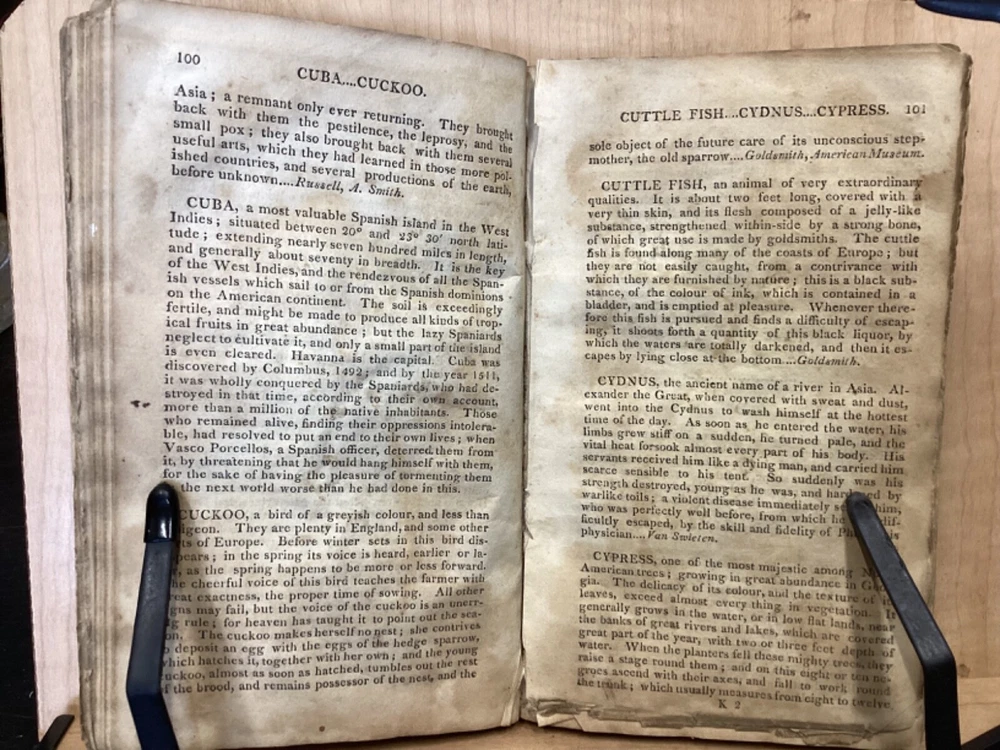 100
CUBA....CUCKOO.
Asia; a remnant only ever returning. They brought
back with them the pestilence, the leprosy, and the
small pox; they also brought back with them several
useful arts, which they had learned in those more pol-
ished countries, and several productions of the earth,
before unknown....Russell, A. Smith.
CUBA, a most valuable Spanish island in the West
Indies; situated between 20° and 23° 30' north lati-
tude; extending nearly seven hundred miles in length,
and generally about seventy in breadth. It is the key
of the West Indies, and the rendezvous of all the Span-
ish vessels which sail to or from the Spanish dominions
on the American continent. The soil is exceedingly
fertile, and might be made to produce all kinds of trop-
ical fruits in great abundance; but the lazy Spaniards
neglect to cultivate it, and only a small part of the island
is even cleared. Havanna is the capital. Cuba was
discovered by Columbus, 1492; and by the year 1511,
it was wholly conquered by the Spaniards, who had de-
stroyed in that time, according to their own account,
more than a million of the native inhabitants. Those
who remained alive, finding their oppressions intolera-
ble, had resolved to put an end to their own lives; when
Vasco Porcellos, a Spanish officer, deterred them from
it, by threatening that he would hang himself with them,
for the sake of having the pleasure of tormenting them
the next world worse than he had done in this.
CUCKOO, a bird of a greyish colour, and less than
igeon. They are plenty in England, and some other
ts of Europe. Before winter sets in this bird dis-
pears; in the spring its voice is heard, earlier or la-
, as the spring happens to be more or less forward.
he cheerful voice of this bird teaches the farmer with
reat exactness, the proper time of sowing. All other
gns may fail, but the voice of the cuckoo is an unerr-
g rule; for heaven has taught it to point out the sea-
on. The cuckoo makes herself no nest; she contrives
deposit an egg with the eggs of the hedge sparrow,
which hatches it, together with her own; and the young
cuckoo, almost as soon as hatched, tumbles out the rest
f the brood, and remains possessor of the nest, and the
CUTTLE FISH....CYDNUS....CYPRESS. 101
sole object of the future care of its unconscious step-
mother, the old sparrow....Goldsmith, American Museum.
CUTTLE FISH, an animal of very extraordinary
qualities. It is about two feet long, covered with a
very thin skin, and its flesh composed of a jelly-like
substance, strengthened within-side by a strong bone,
of which great use is made by goldsmiths. The cuttle
fish is found along many of the coasts of Europe; but
they are not easily caught, from a contrivance with
which they are furnished by nature; this is a black sub-
stance, of the colour of ink, which is contained in a
bladder, and is emptied at pleasure. Whenever there-
fore this fish is pursued and finds a difficulty of escap-
ing, it shoots forth a quantity of this black liquor, by
which the waters are totally darkened, and then it es-
capes by lying close at the bottom....Goldsmith.
CYDNUS, the ancient name of a river in Asia. Al-
exander the Great, when covered with sweat and dust,
went into the Cydnus to wash himself at the hottest
time of the day. As soon as he entered the water, his
limbs grew stiff on a sudden, he turned pale, and the
vital heat forsook almost every part of his body. His
servants received him like a dying man, and carried him
scarce sensible to his tent. So suddenly was his
strength destroyed, young as he was, and hard ed by
warlike toils; a violent disease immediately s him,
who was perfectly well before, from which he dif-
ficultly escaped, by the skill and fidelity of Ph is
physician....Van Swieten.
CYPRESS, one of the most majestic among N
American trees; growing in great abundance in Geor
gia. The delicacy of its colour, and the texture of its
leaves, exceed almost every thing in vegetation. It
generally grows in the water, or in low flat lands, near
the banks of great rivers and lakes, which are covered
great part of the year, with two or three feet depth of
water. When the planters fell these mighty trees, they
raise a stage round them; and on this eight or ten ne-
groes ascend with their axes, and fall to work round
the trunk; which usually measures from eight to twelve
K 2